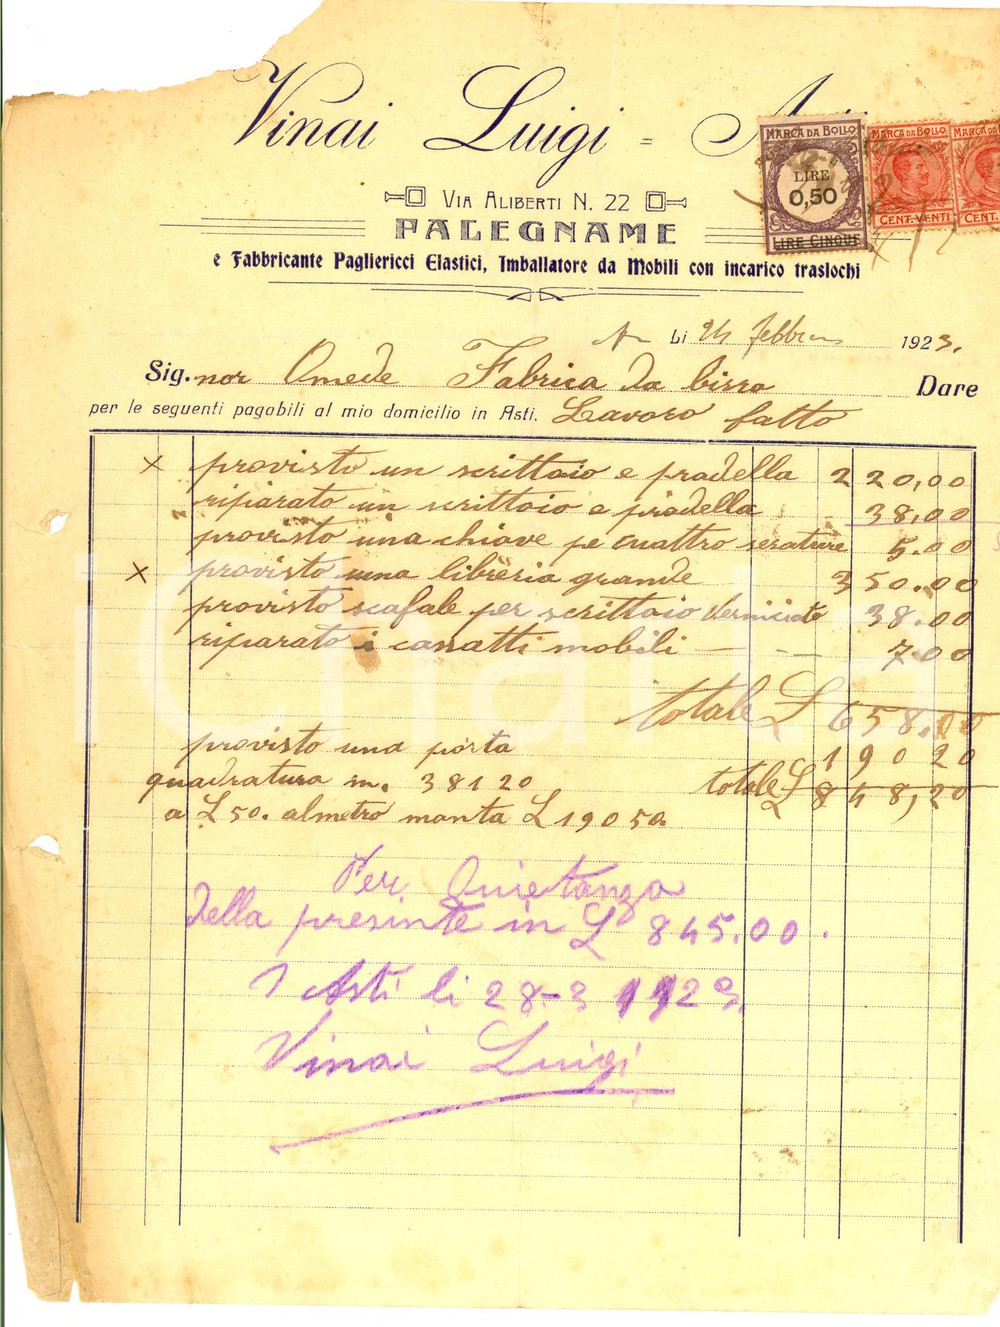 Vinai Luigi =
MARCA DA BOLLO
LIRE
0,50
LIRE CINQUE
MARCA DA BOLLO
CENT. VENTI
MARCA DA
CENT.
VIA ALIBERTI N. 22
PALEGNAME
e Fabbricante Pagliericci Elastici, Imballatore da Mobili con incarico traslochi
Li 24 febbraio 1923.
Sig.nor Omede Fabrica da birra Dare
per le seguenti pagabili al mio domicilio in Asti. Lavoro fatto
x provisto un scrittoio e pradella 220,00
riparato un scrittoio e pradella 38,00
provisto una chiave pe cuattro serature 5.00
x provisto una libreria grande 350.00
provisto scafale per scrittoio verniciato 38.00
riparato i cassatti mobili — - — 7.00
totale £ 658,00
provisto una porta 190 20
quadratura m. 38120 totale £ 848,20
a £ 50. al metro manta £ 190 50.
Per Quietanza
della presente in £ 845.00.
Asti li 28-3 1923.
Vinai Luigi